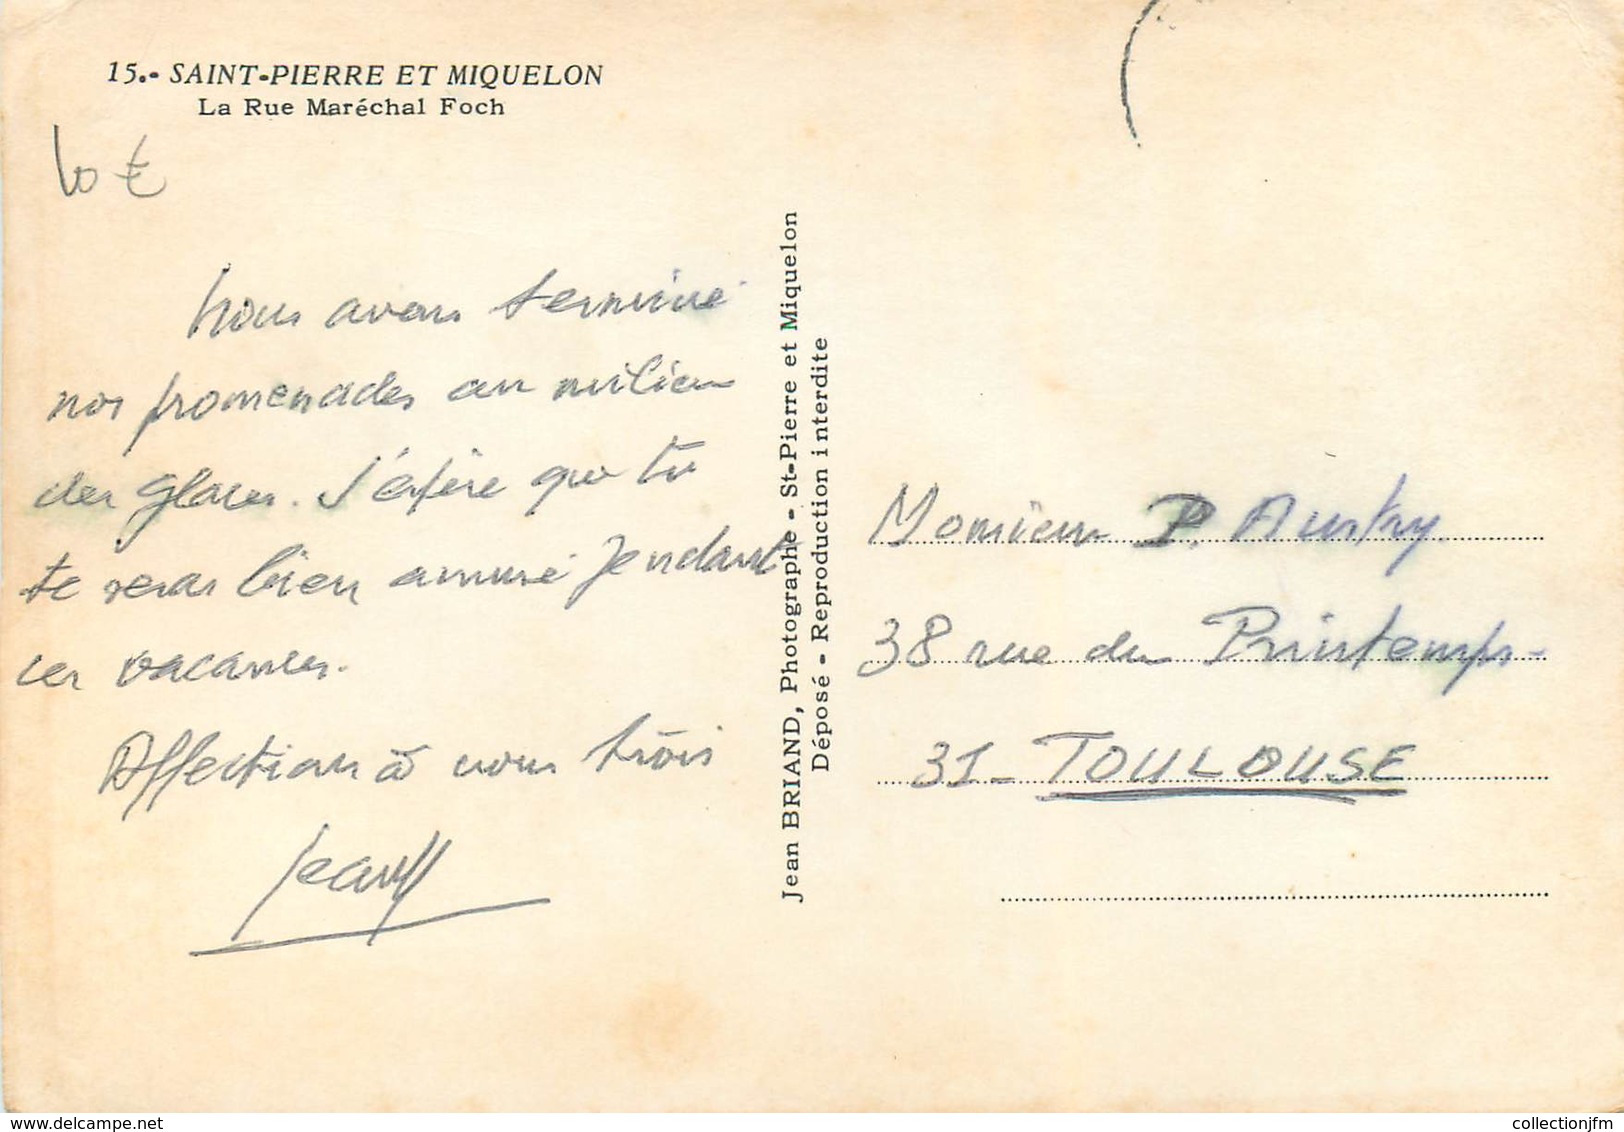 15.- SAINT-PIERRE ET MIQUELON
La Rue Maréchal Foch
10 €
Nous avons terminé
nos promenades au milieu
des glaces. J'espère que tu
te seras bien amusé pendant
ces vacances.
Affection à vous trois
Jean BRIAND, Photographe - St-Pierre et Miquelon
Déposé - Reproduction interdite
Monsieur P. Austry
38 rue du Printemps-
31- TOULOUSE
collectionjfm